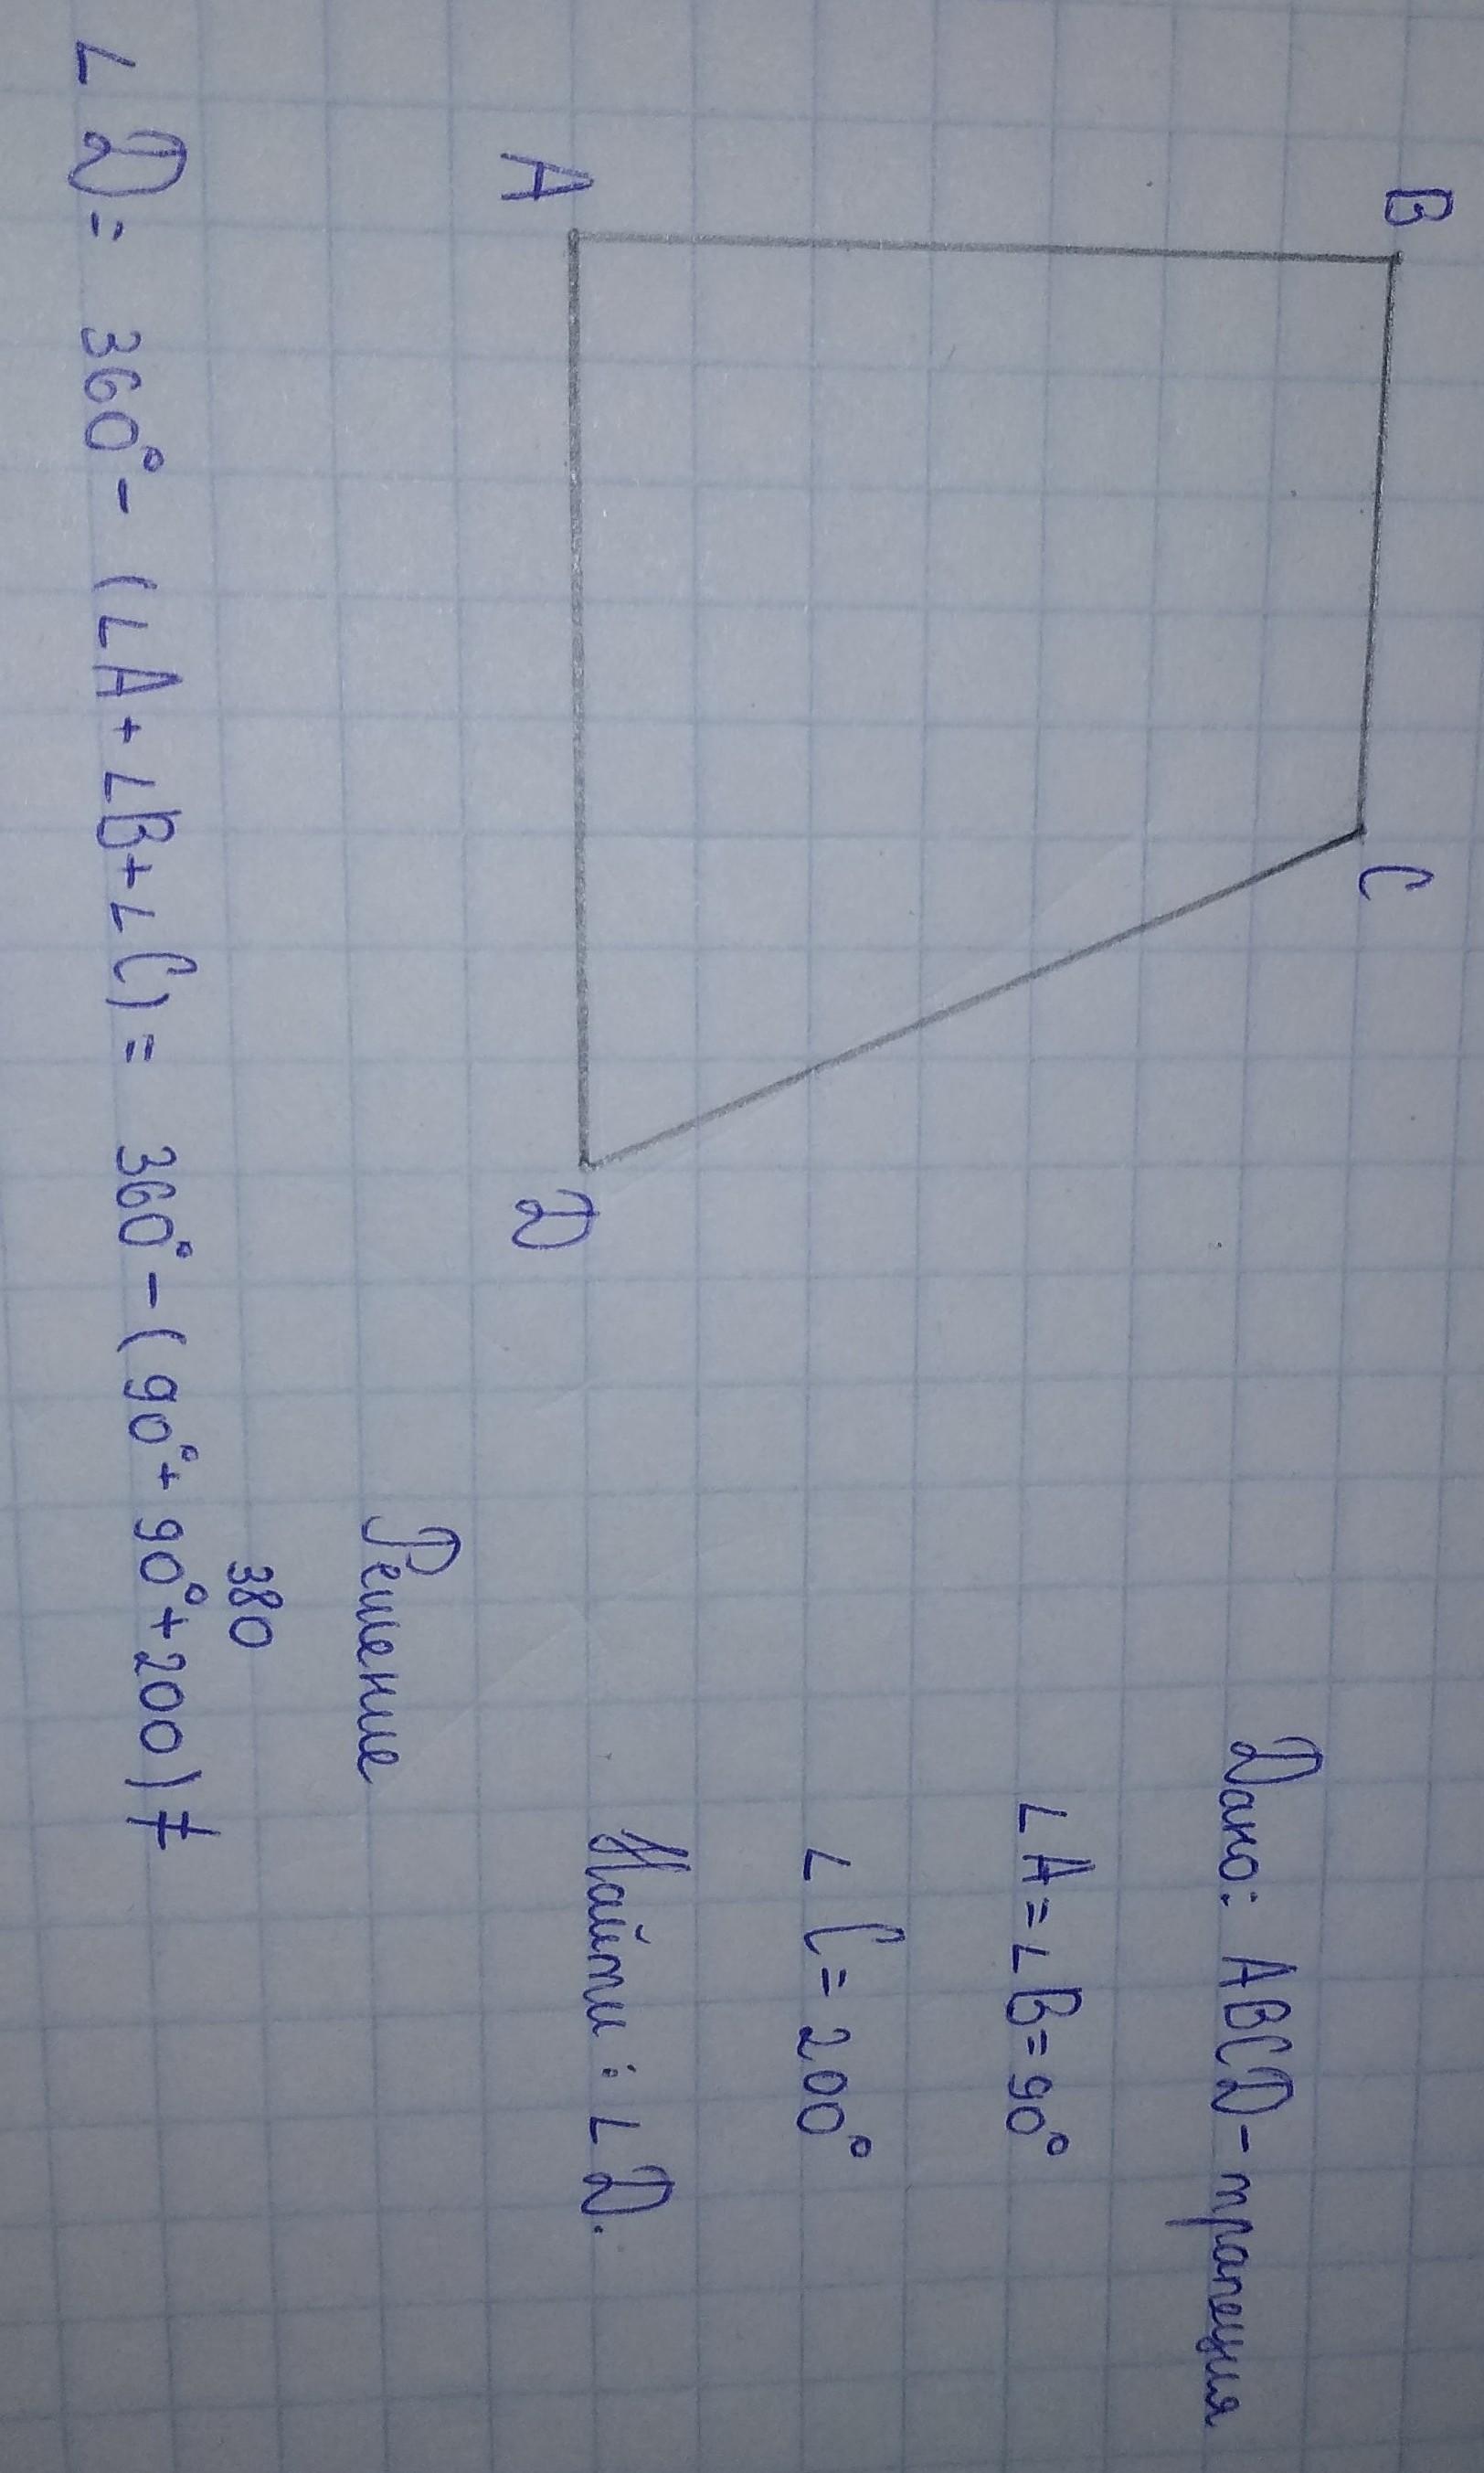 B
C
Дано: ABCD - трапеция
∠A = ∠B = 90°
∠C = 200°
A
D
Найти: ∠D.
Решение
380
∠D = 360° - (∠A + ∠B + ∠C) = 360° - (90° + 90° + 200) ≠